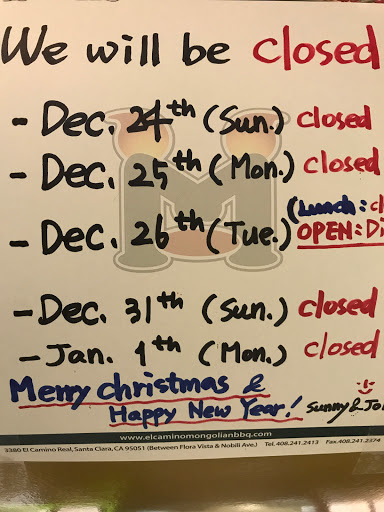 We will be closed
- Dec. 24th (Sun.) closed
- Dec. 25th (Mon.) closed
(Lunch: cl
- Dec. 26th (Tue.) OPEN: Di
- Dec. 31th (Sun.) closed
- Jan. 1th (Mon.) closed
Merry christmas &
Happy New Year! Sunny & Jo
www.elcaminomongolianbbq.com
3380 El Camino Real, Santa Clara, CA 95051 (Between Flora Vista & Nobili Ave.) Tel. 408.241.2413 Fax.408.241.2374